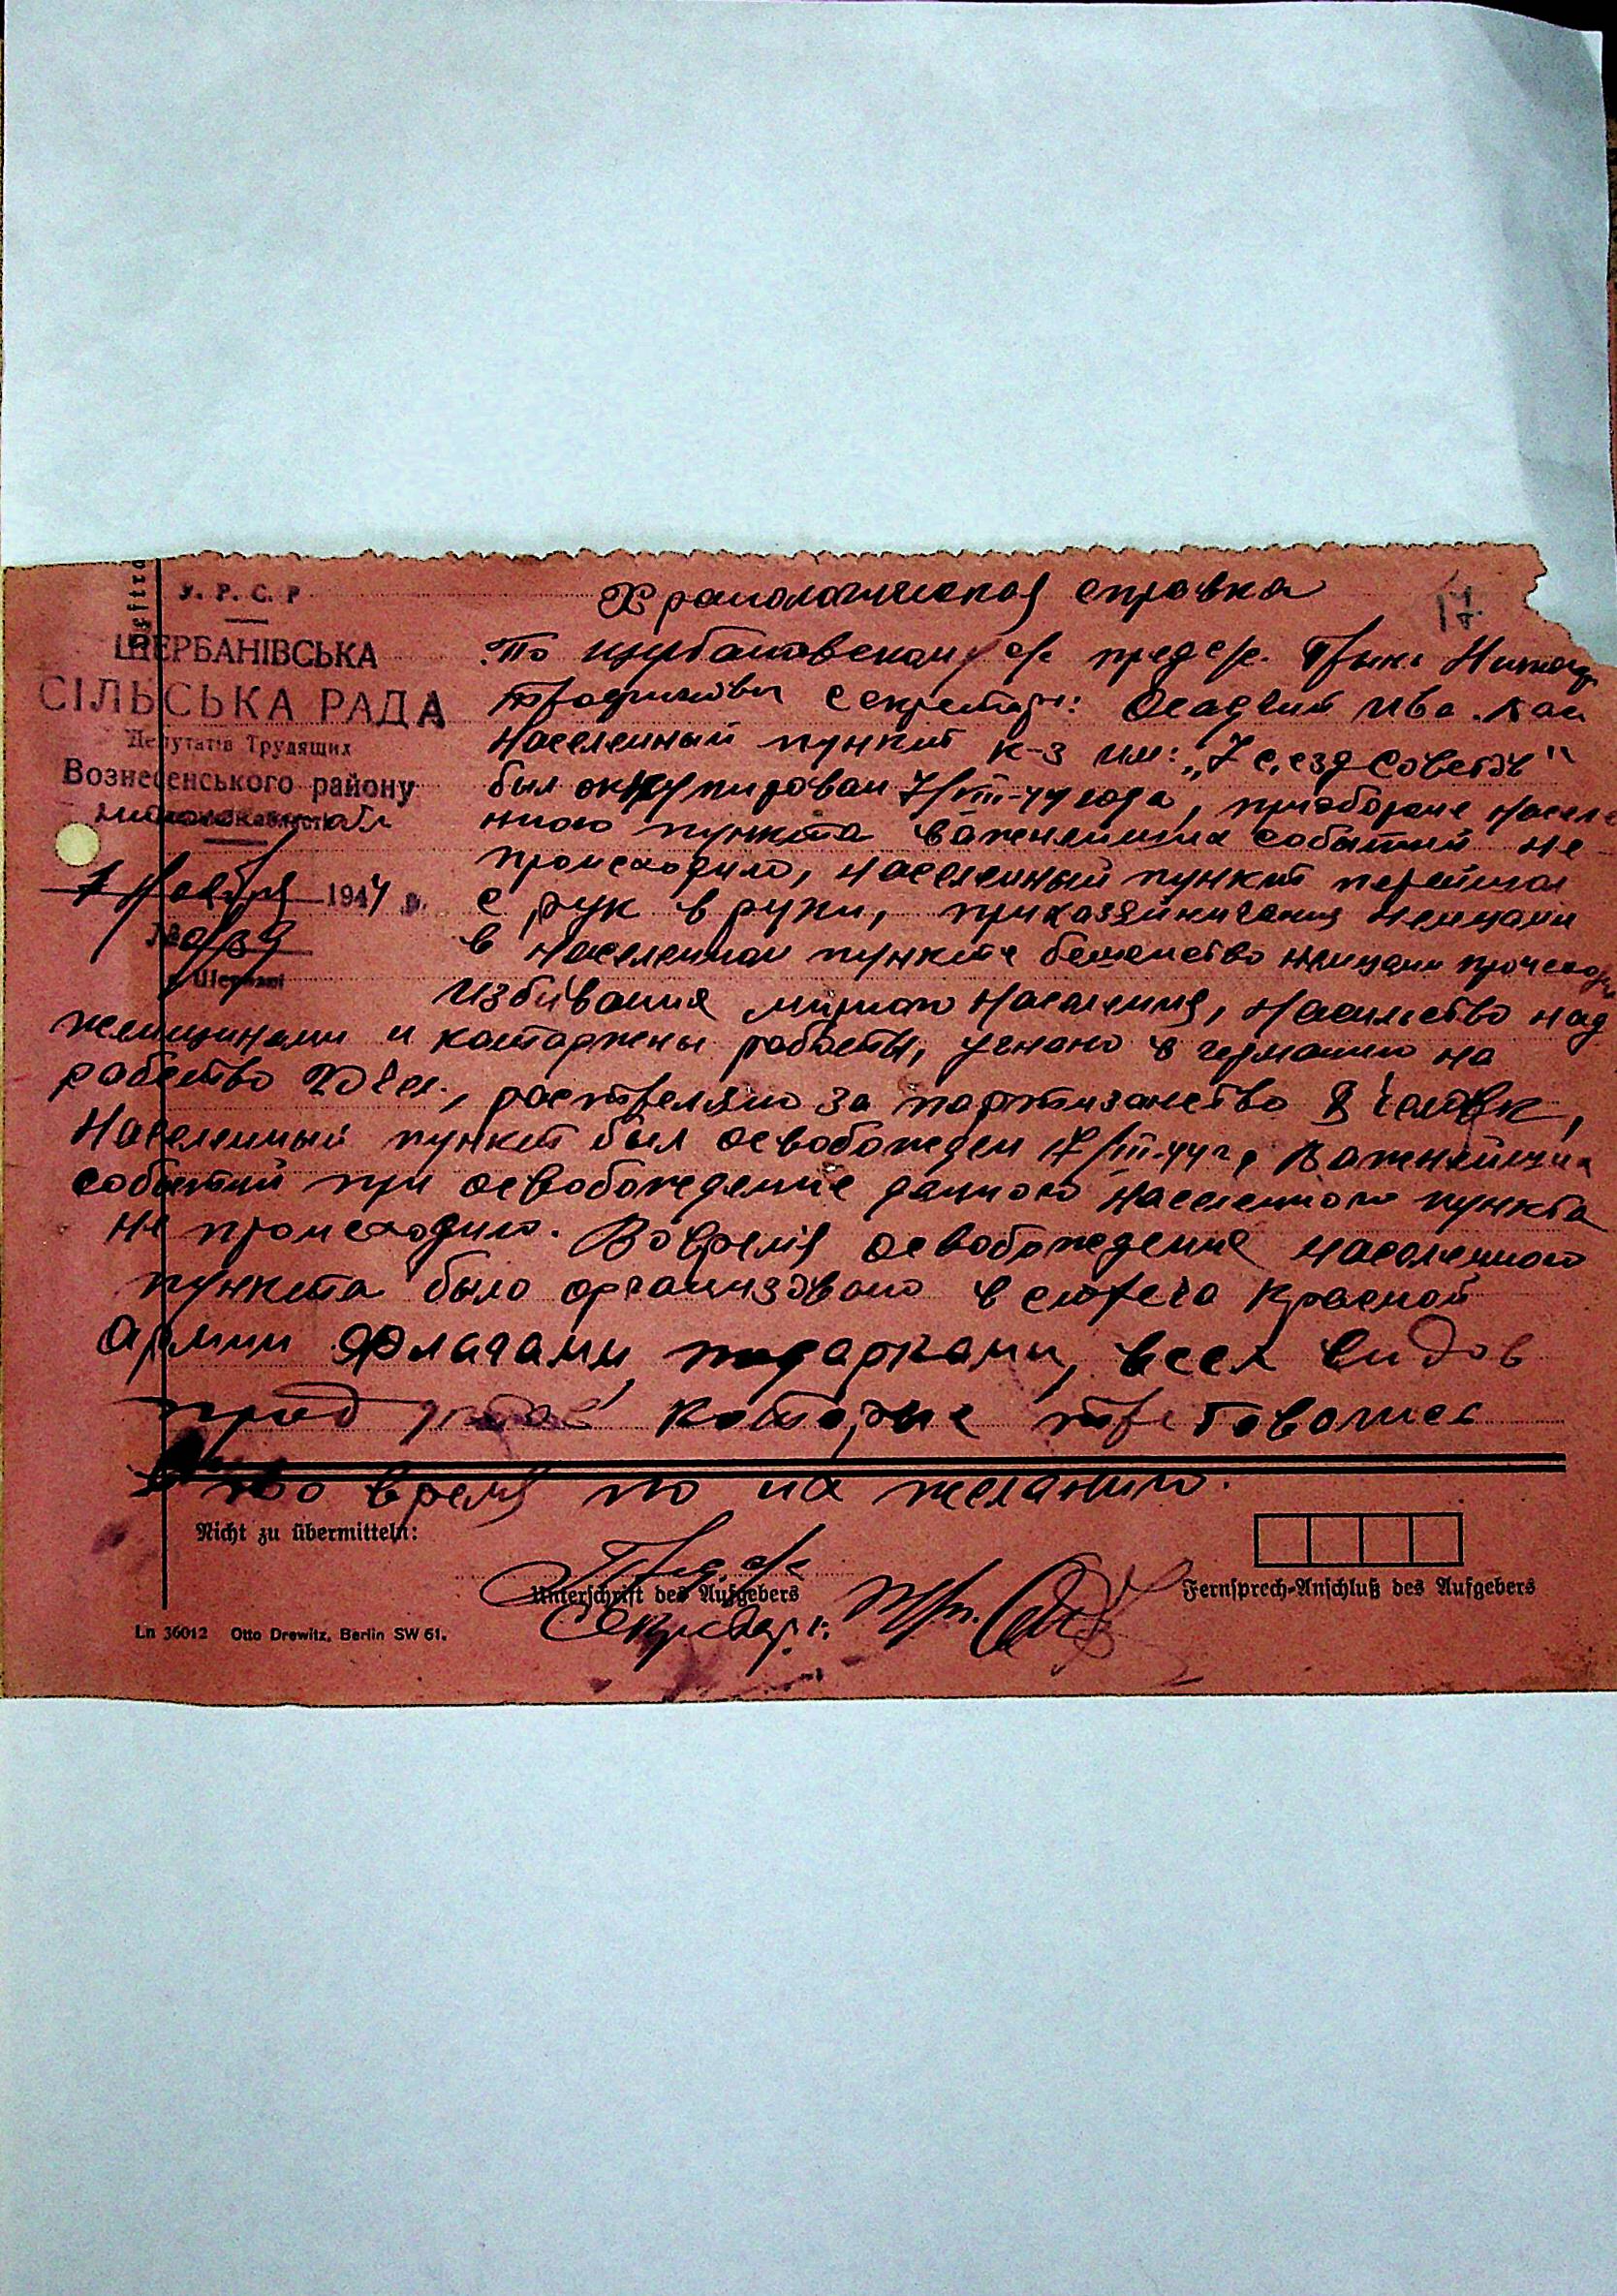 У. Р. С. Р
ЩЕРБАНІВСЬКА
СІЛЬСЬКА РАДА
Депутатів Трудящих
Вознесенського району
1 Ноября 1944 р.
№ 39
с. Щербані
Хранологическая справка
17
По щербановскому с/с пред с/с.
Трофимович секретарь: Осадчий Ива.
Населенный пункт к-з им: „7 с,езд Советов"
был оккупирован 7/VIII-41 года, приобороне населе
нного пункта важнейших событий не
происходило, населенный пункт перейшол
с рук в руки, прихазяйничания немцами
в населенном пункте бешенство немцами
избивания мирного населения, насильство над
женщинами и каторжены работы, угнано в германию на
рабство 20 чел., растреляно за партизанство 8 человек,
Населенный пункт был освобожден /III-44 г, Важнейших
событий при освобождение данного населенного пункта
не происходило. Во время освобождение населенного
пункта было организовано встреча Красной
Армии Флагами, подарками, всех видов
продуктов которые требовались
во время по их желанию.
Nicht zu übermitteln:
Пред. с/с
Unterschrift des Aufgebers
Fernsprech-Anschluß des Aufgebers
Секретарь:
Ln 36012 Otto Drewitz, Berlin SW 61.